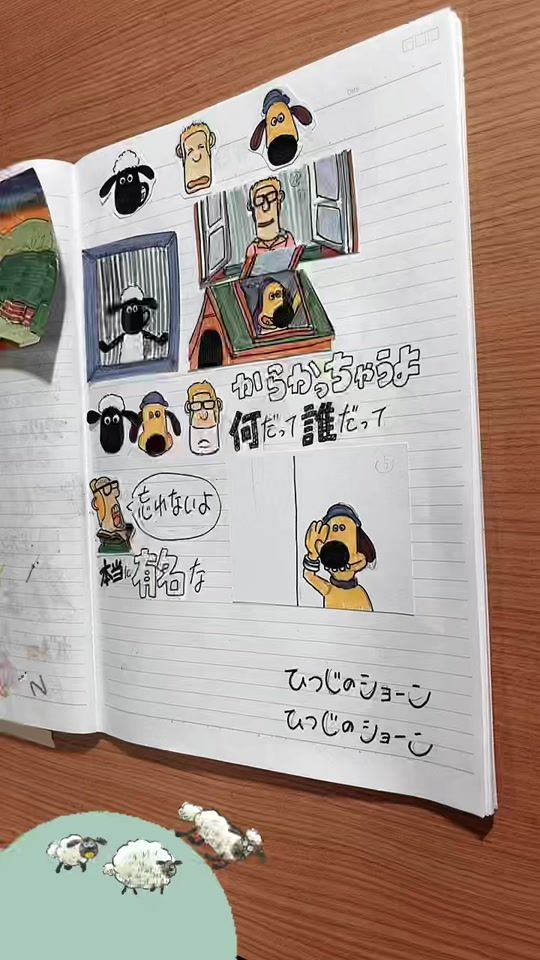 Date
からかっちゃうよ
何だって誰だって
忘れないよ
本当に有名な
ひつじのショーン
ひつじのショーン